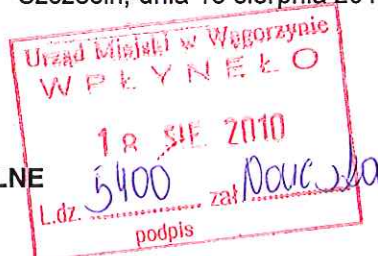 Szczecin, dnia 16 sierpnia 201
Urząd Miejski w Węgorzynie
WPŁYNĘŁO
18 SIE. 2010
LNE
L.dz. 5400 zał.
podpis